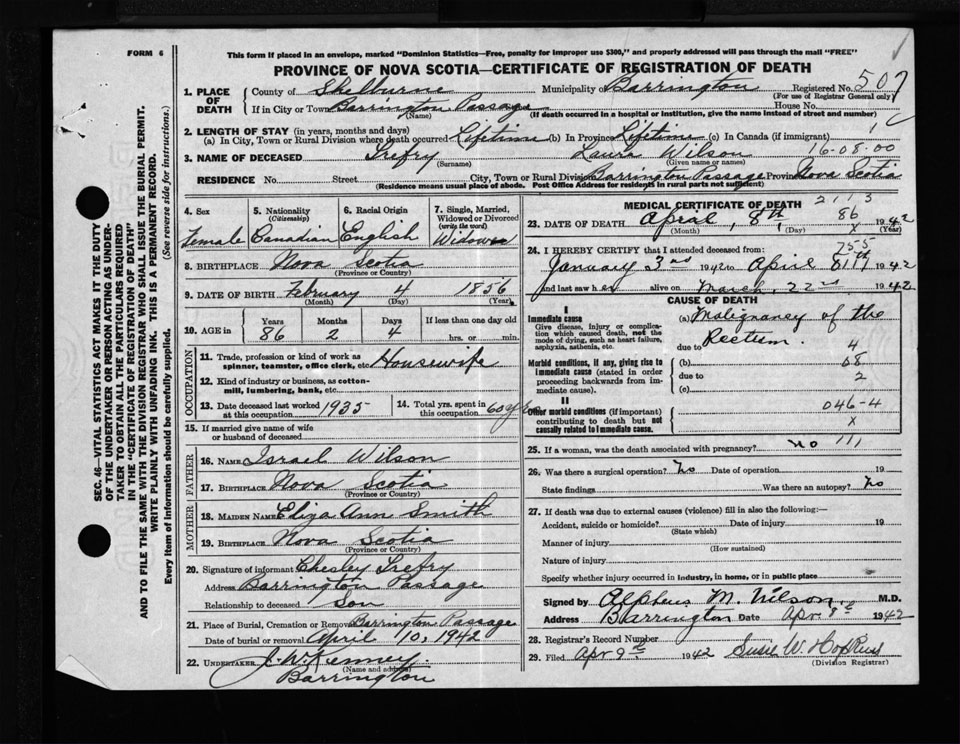 FORM 6
This form if placed in an envelope, marked "Dominion Statistics—Free, penalty for improper use $300," and properly addressed will pass through the mail "FREE"
PROVINCE OF NOVA SCOTIA—CERTIFICATE OF REGISTRATION OF DEATH
1. PLACE OF DEATH
County of Shelburne Municipality Barrington Registered No. 507
(For use of Registrar General only)
If in City or Town Barrington Passage House No.
(Name) (If death occurred in a hospital or institution, give the name instead of street and number)
2. LENGTH OF STAY (in years, months and days)
(a) In City, Town or Rural Division where death occurred Lifetime (b) In Province Lifetime (c) In Canada (if immigrant)
16-08-00
3. NAME OF DECEASED Trefry Laura Wilson
(Surname) (Given name or names)
RESIDENCE No. Street City, Town or Rural Division Barrington Passage Province Nova Scotia
(Residence means usual place of abode. Post Office Address for residents in rural parts not sufficient)
4. Sex Female
5. Nationality (Citizenship) Canadian
6. Racial Origin English
7. Single, Married, Widowed or Divorced (write the word) Widowed
8. BIRTHPLACE Nova Scotia
(Province or Country)
9. DATE OF BIRTH February 4 1856
(Month) (Day) (Year)
10. AGE in Years 86 Months 2 Days 4 If less than one day old hrs. or min.
OCCUPATION
11. Trade, profession or kind of work as spinner, teamster, office clerk, etc. Housewife
12. Kind of industry or business, as cotton-mill, lumbering, bank, etc.
13. Date deceased last worked at this occupation 1935
14. Total yrs. spent in this occupation 60 yrs
15. If married give name of wife or husband of deceased
FATHER
16. NAME Israel Wilson
17. BIRTHPLACE Nova Scotia
(Province or Country)
MOTHER
18. MAIDEN NAME Eliza Ann Smith
19. BIRTHPLACE Nova Scotia
(Province or Country)
20. Signature of informant Chesley Trefry
Address Barrington Passage
Relationship to deceased Son
21. Place of Burial, Cremation or Removal Barrington Passage
Date of burial or removal April 10, 1942
22. UNDERTAKER J. W. Kenney
(Name and address)
Barrington
MEDICAL CERTIFICATE OF DEATH 2113
23. DATE OF DEATH April, 8th, 86 x 1942
(Month) (Day) (Year)
24. I HEREBY CERTIFY that I attended deceased from: 755
January 3rd 1942 to April 1942
and last saw her alive on March, 22nd 1942
CAUSE OF DEATH
I
Immediate cause (a) Malignancy of the
Give disease, injury or complication which caused death, not the mode of dying, such as heart failure, asphyxia, asthenia, etc.
Rectum.
due to 4
Morbid conditions, if any, giving rise to immediate cause (stated in order proceeding backwards from immediate cause).
(b) 08
due to 2
(c)
II
Other morbid conditions (if important) contributing to death but not causally related to immediate cause.
046-4
x
25. If a woman, was the death associated with pregnancy? no 111
26. Was there a surgical operation? No Date of operation 19
State findings Was there an autopsy? No
27. If death was due to external causes (violence) fill in also the following:—
Accident, suicide or homicide? Date of injury 19
(State which)
Manner of injury
(How sustained)
Nature of injury
Specify whether injury occurred in industry, in home, or in public place
Signed by Alpheus M. Wilson M.D.
Address Barrington Date Apr. 8th 1942
28. Registrar's Record Number
29. Filed Apr 9th 1942 Susie W. Hopkins
(Division Registrar)
SEC. 46—VITAL STATISTICS ACT MAKES IT THE DUTY
OF THE UNDERTAKER OR PERSON ACTING AS UNDER-
TAKER TO OBTAIN ALL THE PARTICULARS REQUIRED
IN THE "CERTIFICATE OF REGISTRATION OF DEATH"
AND TO FILE THE SAME WITH THE DIVISION REGISTRAR WHO SHALL ISSUE THE BURIAL PERMIT.
WRITE PLAINLY WITH UNFADING INK. THIS IS A PERMANENT RECORD.
Every item of information should be carefully supplied. (See reverse side for instructions.)